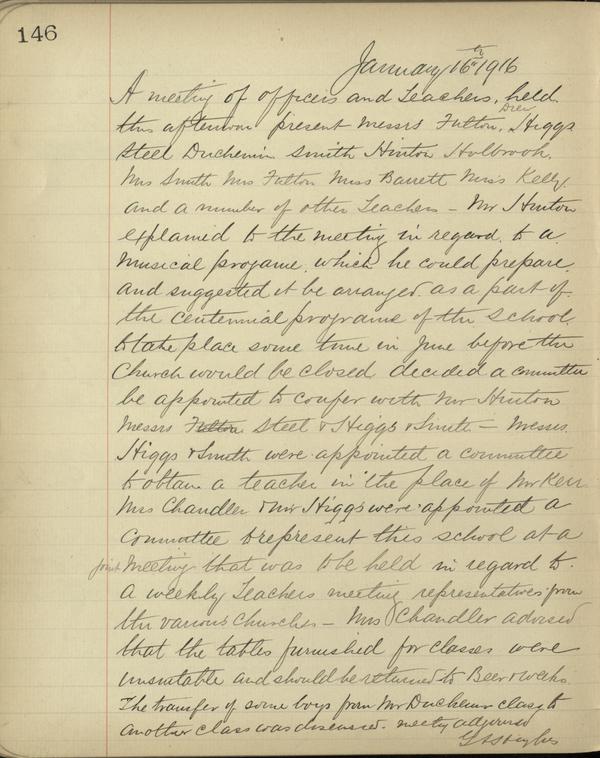 146
January 16th 1916
A meeting of officers and Teachers, held
Drew
this afternoon present Messrs Fulton, Higgs
Steel Duchemin Smith Hinton Holbrook,
Mrs Smith Mrs Fulton Miss Barrett Miss Kelly
and a number of other Teachers – Mr Hinton
explained to the meeting in regard to a
musical programe which he could prepare,
and suggested it be arranged as a part of
the centennial programe of the school
to take place some time in June before the
Church would be closed decided a committee
be appointed to confer with Mr Hinton
Messrs Fulton Steel & Higgs & Smith – Messrs
Higgs & Smith were appointed a committee
to obtain a teacher in the place of Mr Kerr
Mrs Chandler & Mr Higgs were appointed a
Committee to represent this school at a
joint meeting that was to be held in regard to
a weekly Teachers meeting representatives from
the various churches – Mrs Chandler advised
that the tables furnished for classes were
unsuitable and should be returned to Beer & Weeks.
The transfer of some boys from Mr Duchemin class to
another class was discussed. meeting adjourned